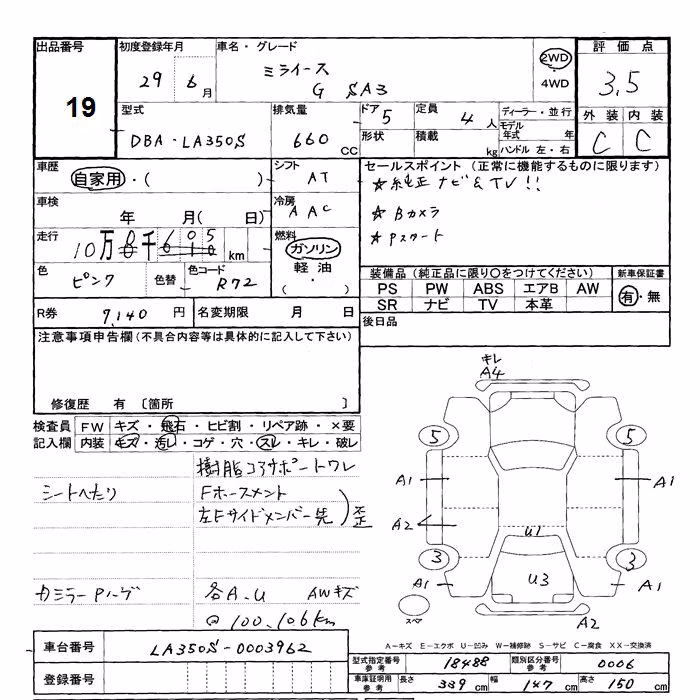 出品番号
19
初度登録年月
29 6月
車名・グレード
ミライース
G SA3
2WD
・
4WD
評価点
3.5
外装 内装
C C
型式
DBA-LA350S
排気量
660 CC
ドア 5
形状
定員 4人
積載 kg
ディーラー・並行
モデル年式 年
ハンドル 左・右
車歴
自家用・( )
シフト
AT
車検
年 月( 日)
冷房
AAC
走行
10万 千 605 km
燃料
ガソリン
軽油
( ・ )
色
ピンク
色替
色コード
R72
セールスポイント(正常に機能するものに限ります)
☆純正ナビ&TV!!
☆Bカメラ
☆Pスタート
装備品(純正品に限り○をつけてください)
PS PW ABS エアB AW
SR ナビ TV 本革
新車保証書
有・無
R券 7,140円
名変期限 月 日
後日品
注意事項申告欄(不具合内容等は具体的に記入して下さい)
修復歴 有 〔箇所 〕
検査員記入欄
FW キズ・飛石・ヒビ割・リペア跡・×要
内装 キズ・汚レ・コゲ・穴・スレ・キレ・破レ
樹脂コアサポートワレ
シートへたり
Fホースメント
左Fサイドメンバー先
歪
カミラーPハゲ
各A.U AWキズ
@100,106km
キレ
A4
5
5
A1
A1
A2
U1
3
3
A1
U3
A1
スペア
A2
A-キズ E-エクボ U-凹み W-補修跡 S-サビ C-腐食 XX-交換済
車台番号
LA350S-0003962
登録番号
型式指定番号参考 18488
類別区分番号参考 0006
車庫証明用参考
長さ 339cm
幅 147cm
高さ 150cm